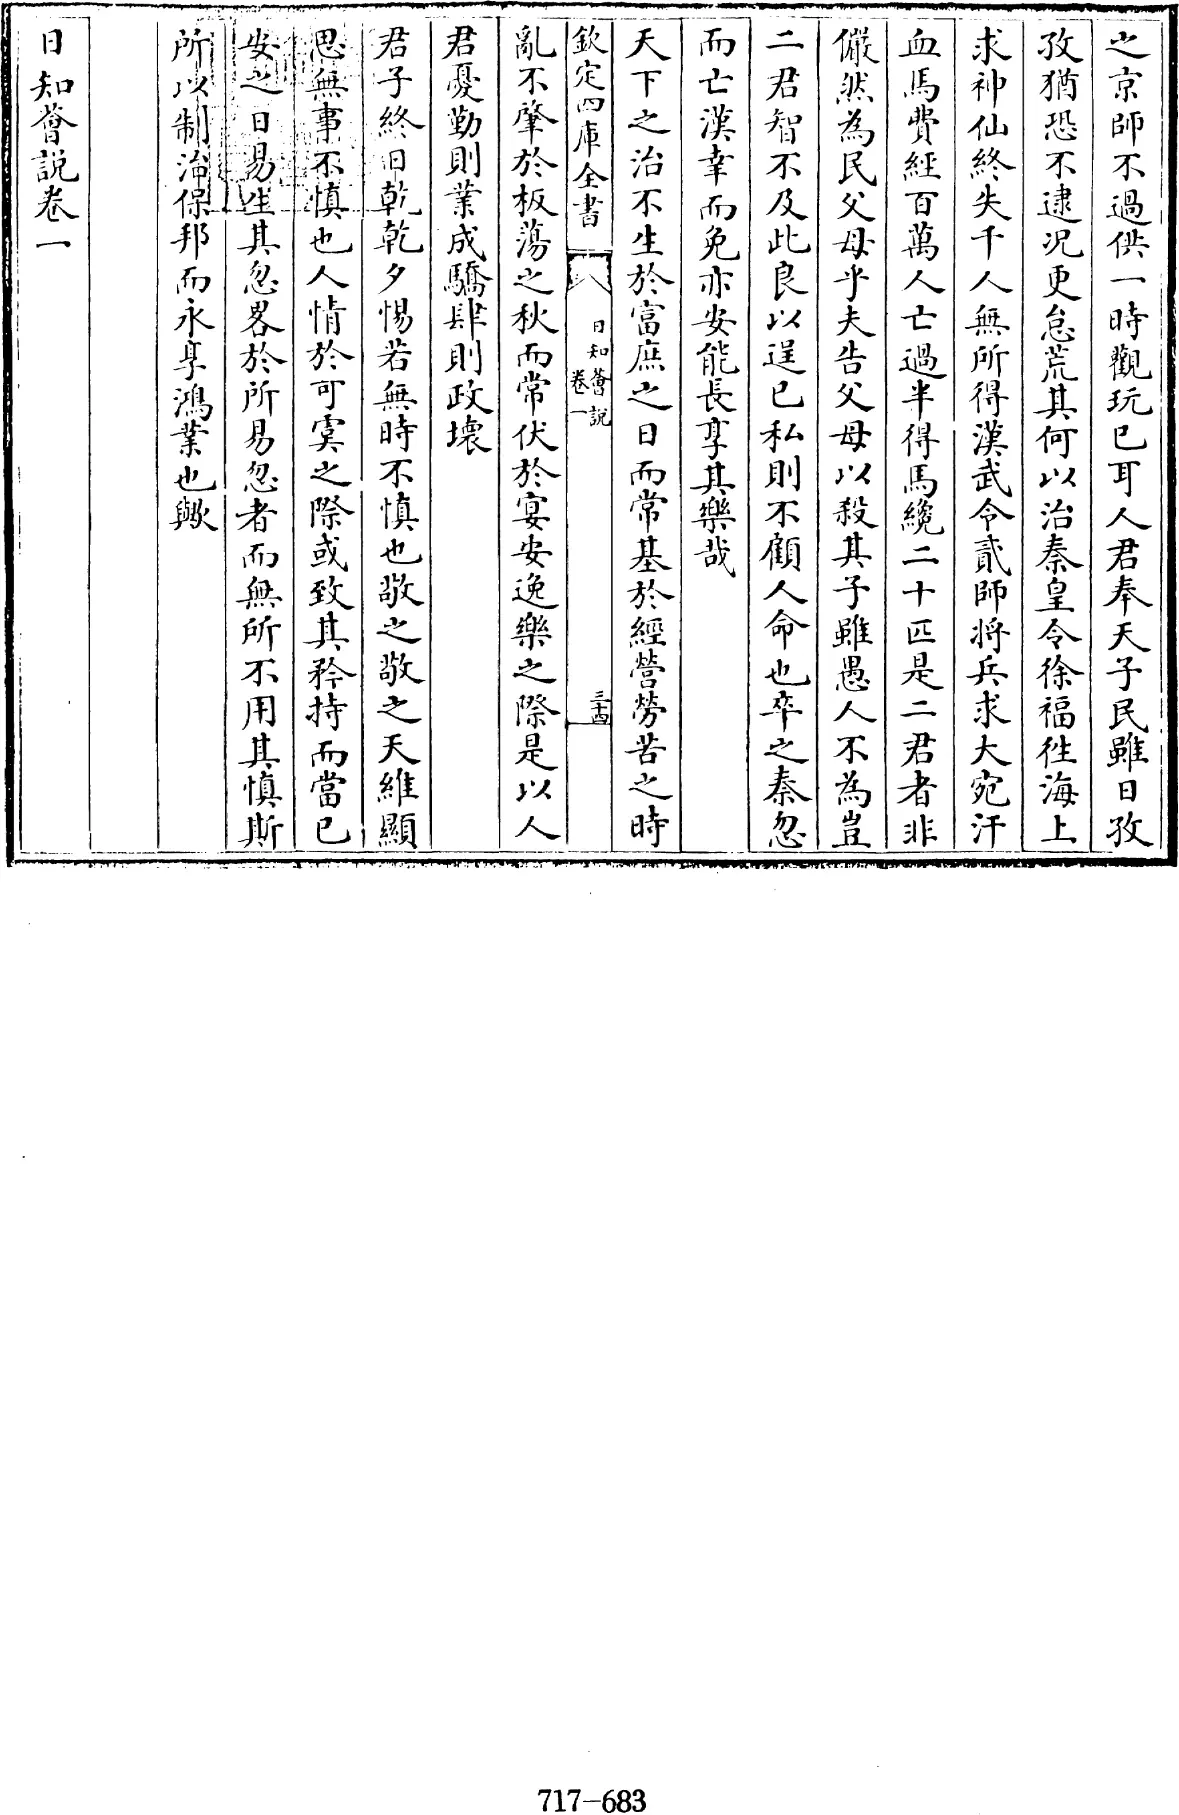 之京師不過供一時觀玩已耳人君奉天子民雖日孜
孜猶恐不逮况更怠荒其何以治秦皇令徐福往海上
求神仙終失千人無所得漢武令貳師將兵求大宛汗
血馬費經百萬人亡過半得馬纔二十匹是二君者非
儼然為民父母乎夫告父母以殺其子雖愚人不為豈
二君智不及此良以逞已私則不顧人命也卒之秦忽
而亡漢幸而免亦安能長享其樂哉
天下之治不生於富庶之日而常基於經營勞苦之時
欽定四庫全書
日知薈說
卷一
三十四
亂不肇於板蕩之秋而常伏於宴安逸樂之際是以人
君憂勤則業成驕肆則政壞
君子終日乾乾夕惕若無時不慎也敬之敬之天維顯
思無事不慎也人情於可寞之際或致其矜持而當已
安之日易生其忽畧於所易忽者而無所不用其慎斯
所以制治保邦而永享鴻業也歟
日知薈說卷一
717-683